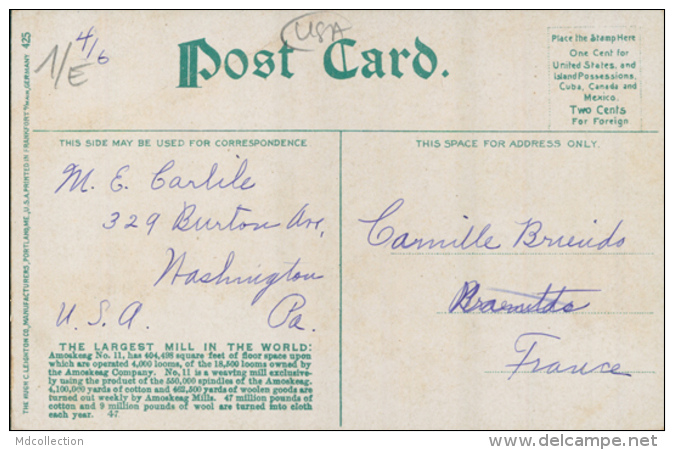 4/6
1/E
USA
Post Card.
Place the Stamp Here
One Cent for
United States, and
Island Possessions,
Cuba, Canada and
Mexico.
Two Cents
For Foreign
THIS SIDE MAY BE USED FOR CORRESPONDENCE
THIS SPACE FOR ADDRESS ONLY.
M. E. Carlile
329 Burton Ave,
Washington
U. S. A. Pa.
Camille Briendo
France
THE LARGEST MILL IN THE WORLD:
Amoskeag No. 11, has 404,498 square feet of floor space upon
which are operated 4,000 looms, of the 18,500 looms owned by
the Amoskeag Company. No. 11 is a weaving mill exclusive-
ly using the product of the 550,000 spindles of the Amoskeag.
4,100,000 yards of cotton and 462,500 yards of woolen goods are
turned out weekly by Amoskeag Mills. 47 million pounds of
cotton and 9 million pounds of wool are turned into cloth
each year. 47
THE HUGH C. LEIGHTON CO., MANUFACTURERS, PORTLAND, ME., U.S.A. PRINTED IN FRANKFORT, GERMANY 425
Mdcollection
www.delcampe.net